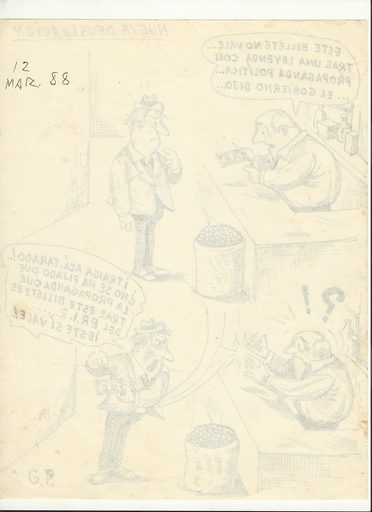 NUEVA DEVALUACIÓN
12
MAR. 88
ESTE BILLETE NO VALE...
TRAE UNA LEYENDA CON
PROPAGANDA POLÍTICA...
...EL GOBIERNO DIJO...
¡TRAIGA ACÁ, TARADO!
¿NO SE HA FIJADO QUE
LA PROPAGANDA QUE
TRAE ESTE BILLETE ES
DEL P.R.I.?
¡ESTE SÍ VALE!
! ?